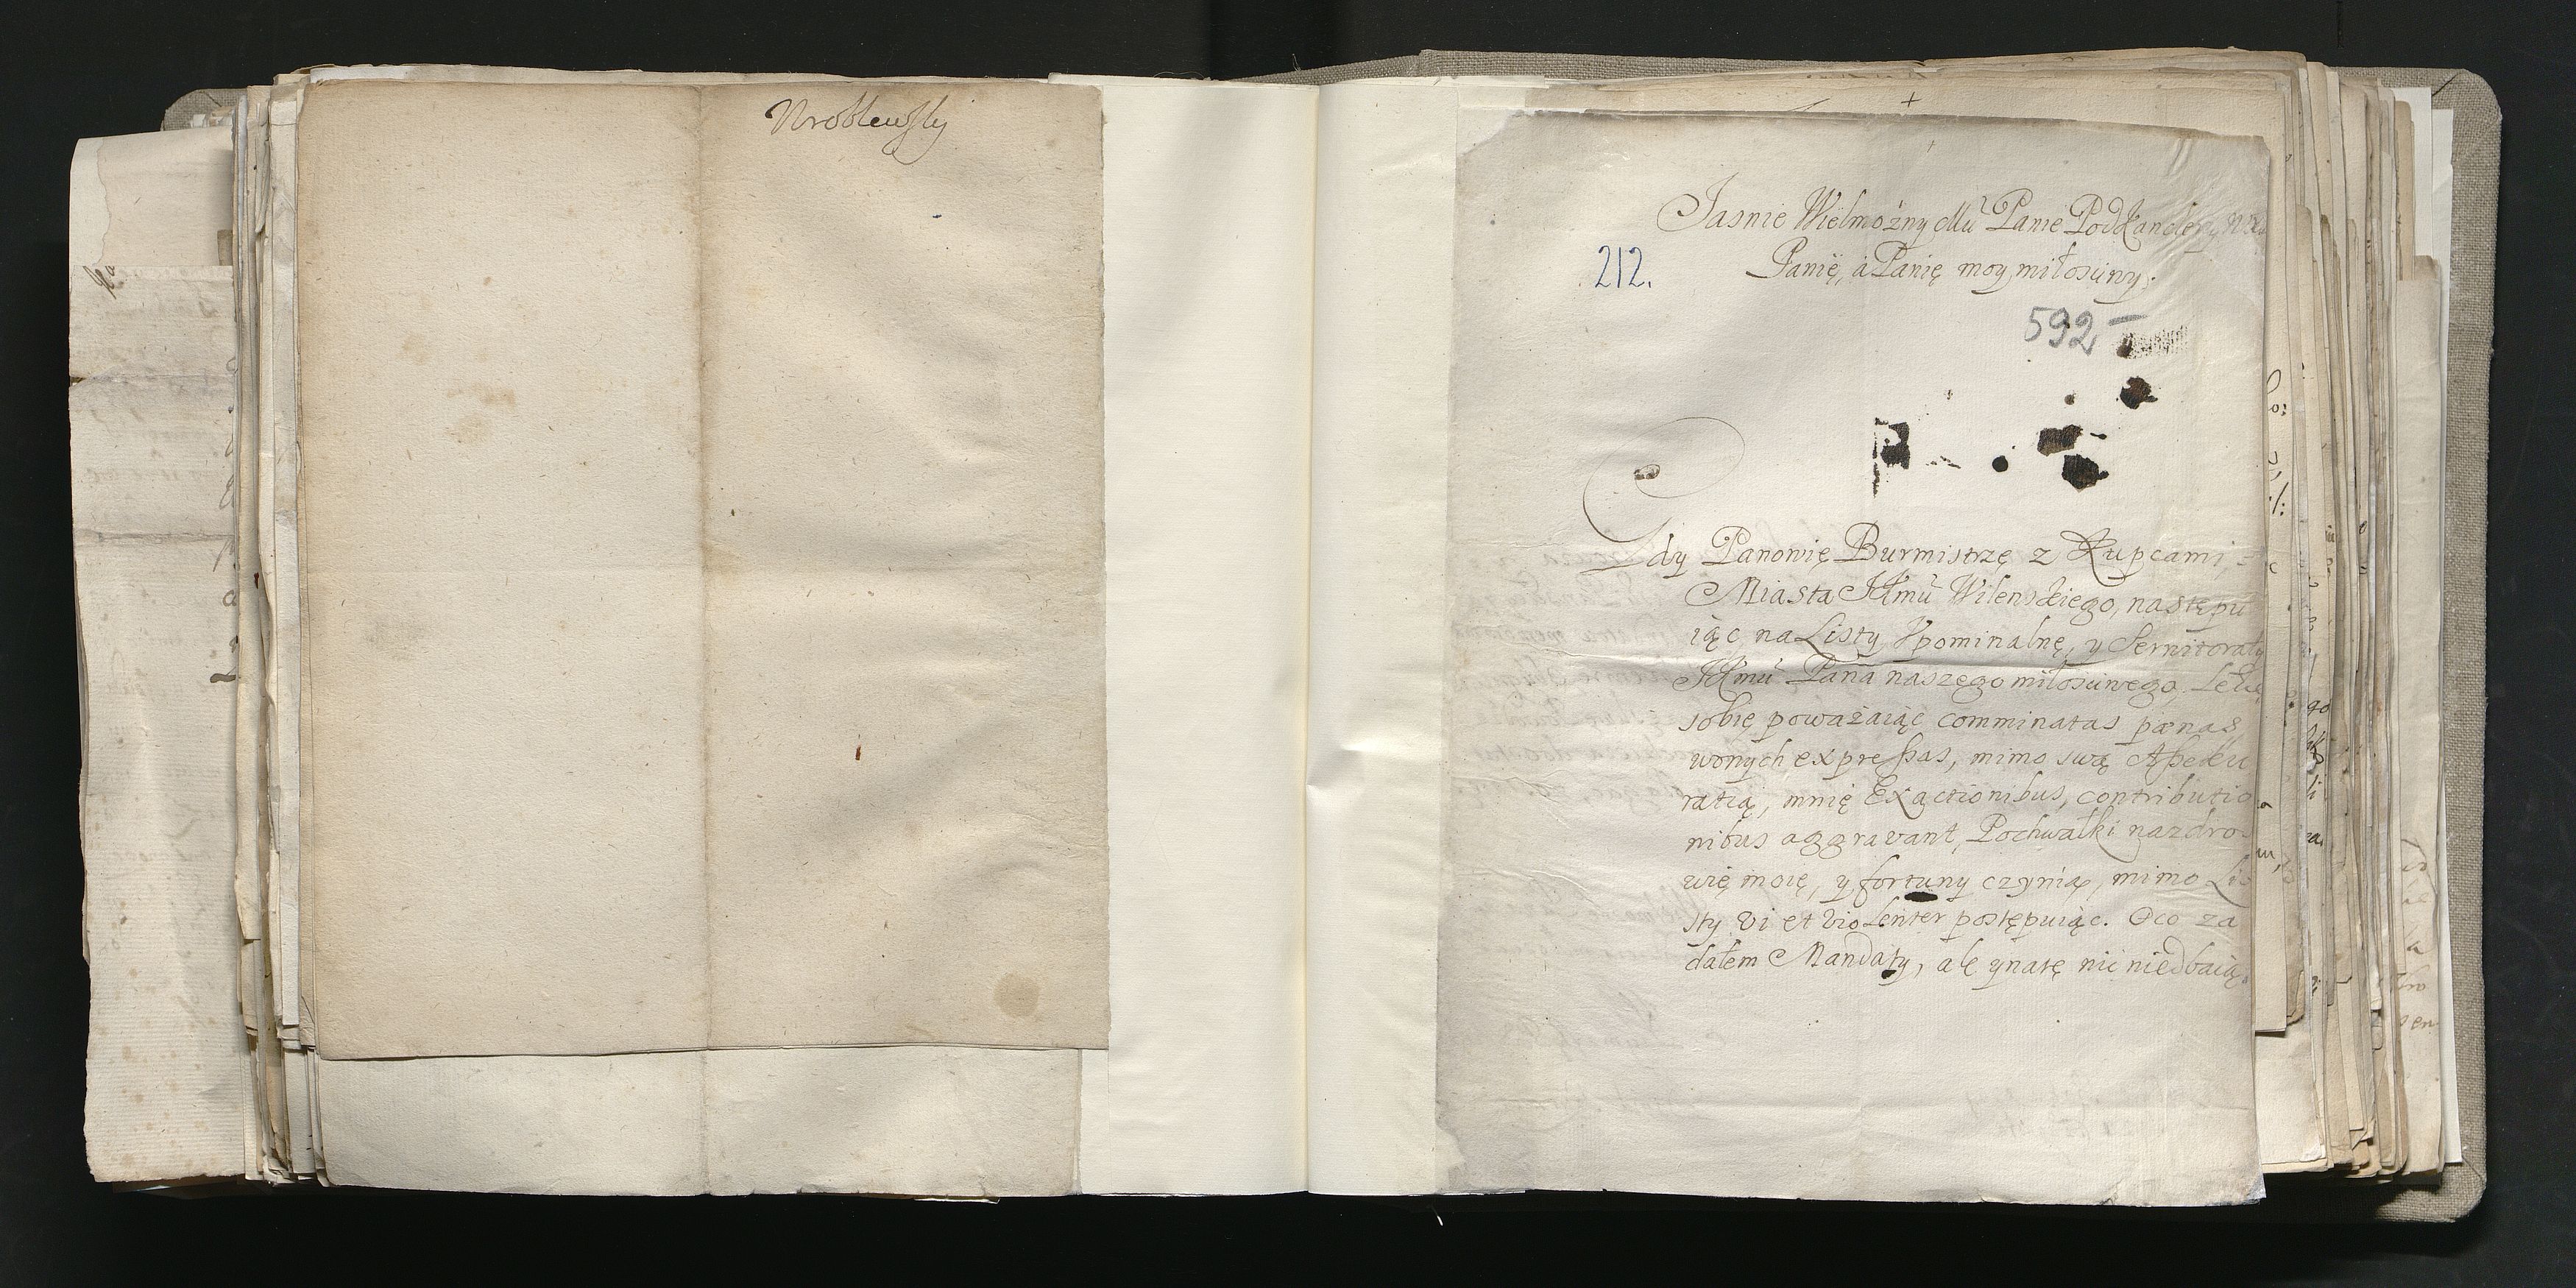 Wroblewsky
Jasnie Wielmożny Mċi Panie PodKanclerzy
Panię, á Panię moy miłosciwy.
212.
592
Gdy Panowię Burmistrzę z Kupcami,
Miasta JKmċi Wilenskiego, następu
iąc na Listy Upominalnę, y Servitoraty
JKmċi Pana naszego miłosciwego, Letką
sobię poważaiąc comminatas pœnas,
wonych expressas, mimo swą Assecu
ratią, mnię Exactionibus, contributio
nibus aggravant, Pochwałki nazdro-
wię moię, y fortuny czynią, mimo Li
sty vi et violenter postępuiąc. Oco za
dałem Mandaty, alę ynatę nic niedbaią